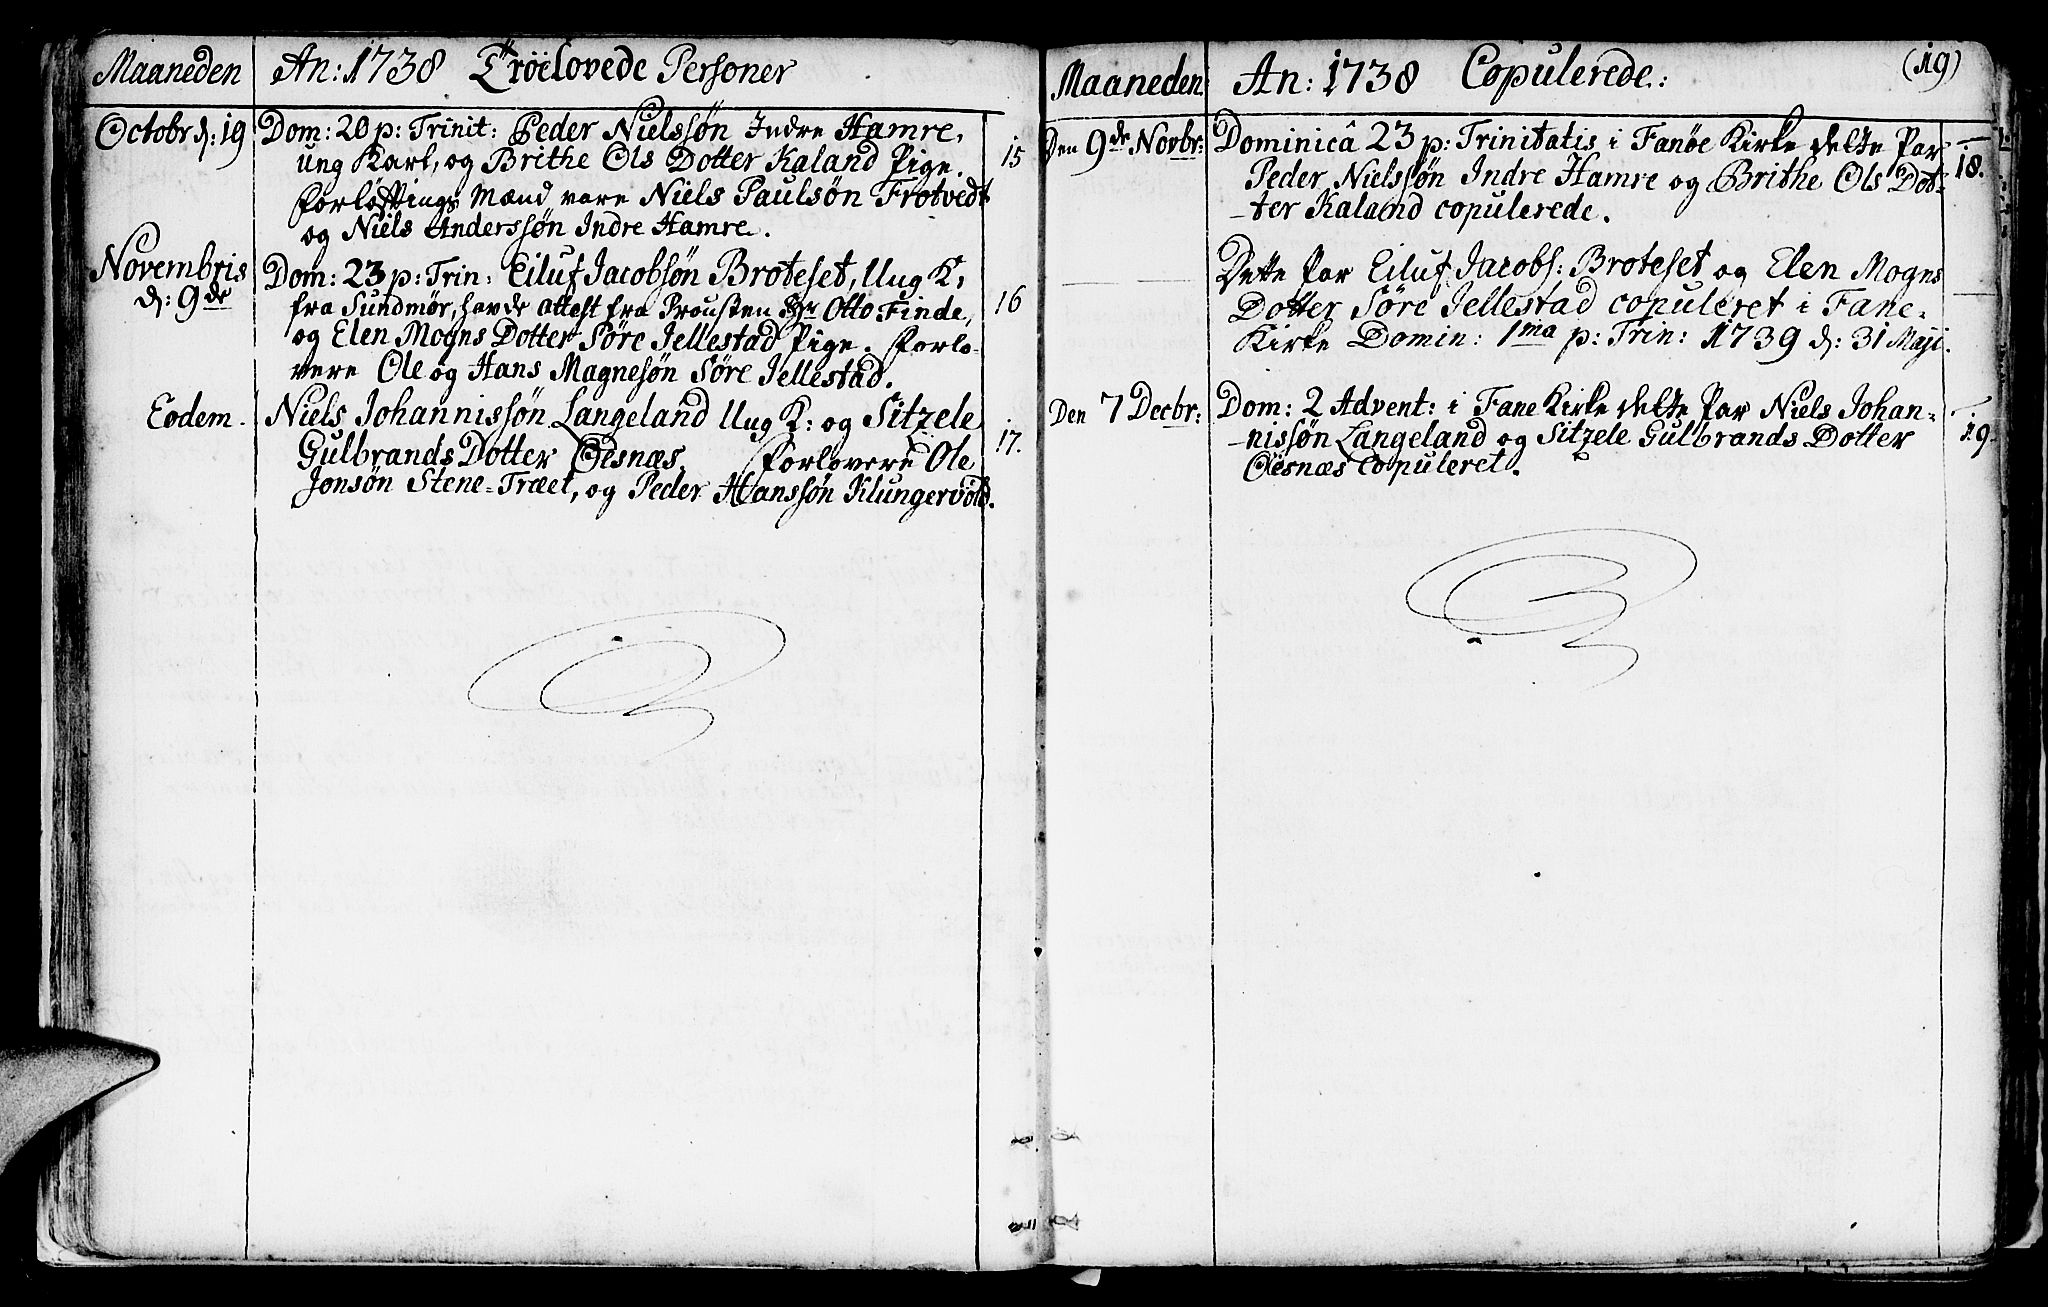 Maaneden An: 1738 Troelovede Personer
Octobr d: 19 Dom: 20 p: Trinit: Peder Nielssøn Indre Hamre,
ung Karl, og Brithe Ols Dotter Kaland Pige. 15
Forløftings Mænd vare Niels Paulsøn Frotvedt
og Niels Anderssøn Indre Hamre.
Novembris Dom: 23 p: Trin: Eiluf Jacobsøn Broteset, Ung K:
d: 9de fra Sundmør, havde attest fra Prousten Hr Otto Finde, 16
og Elen Mogns Dotter Søre Jellestad Pige. Forlo-
vere Ole og Hans Magnesøn Søre Jellestad.
Eodem. Niels Johannissøn Langeland Ung K: og Sitzele
Gulbrands Dotter Øesnæs. Forlovere Ole 17.
Jonsøn Stene-Træet, og Peder Hanssøn Klungervold.
Maaneden An: 1738 Copulerede: (19)
Den 9de Novbr: Dominicâ 23 p: Trinitatis i Fanøe Kirke dette Par
Peder Nielssøn Indre Hamre og Brithe Ols Dot- 18.
-ter Kaland copulerede.
Dette Par Eiluf Jacobs: Broteset og Elen Mogns
Dotter Søre Jellestad copuleret i Fane-
Kirke Domin: 1ma p: Trin: 1739 d: 31 Maji.
Den 7 Decbr: Dom: 2 Advent: i Fane Kirke dette Par Niels Johan-
-nissøn Langeland og Sitzele Gulbrands Dotter 19.
Øesnæs copuleret.